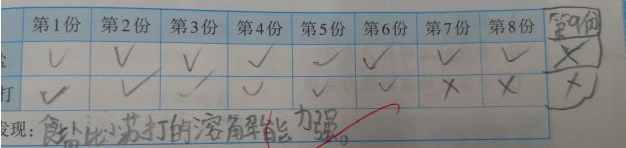 第1份 第2份 第3份 第4份 第5份 第6份 第7份 第8份 第9份
盐 ✓ ✓ ✓ ✓ ✓ ✓ ✓ ✓ ×
打 ✓ ✓ ✓ ✓ ✓ ✓ × × ×
发现：食盐比小苏打的溶解能力强。